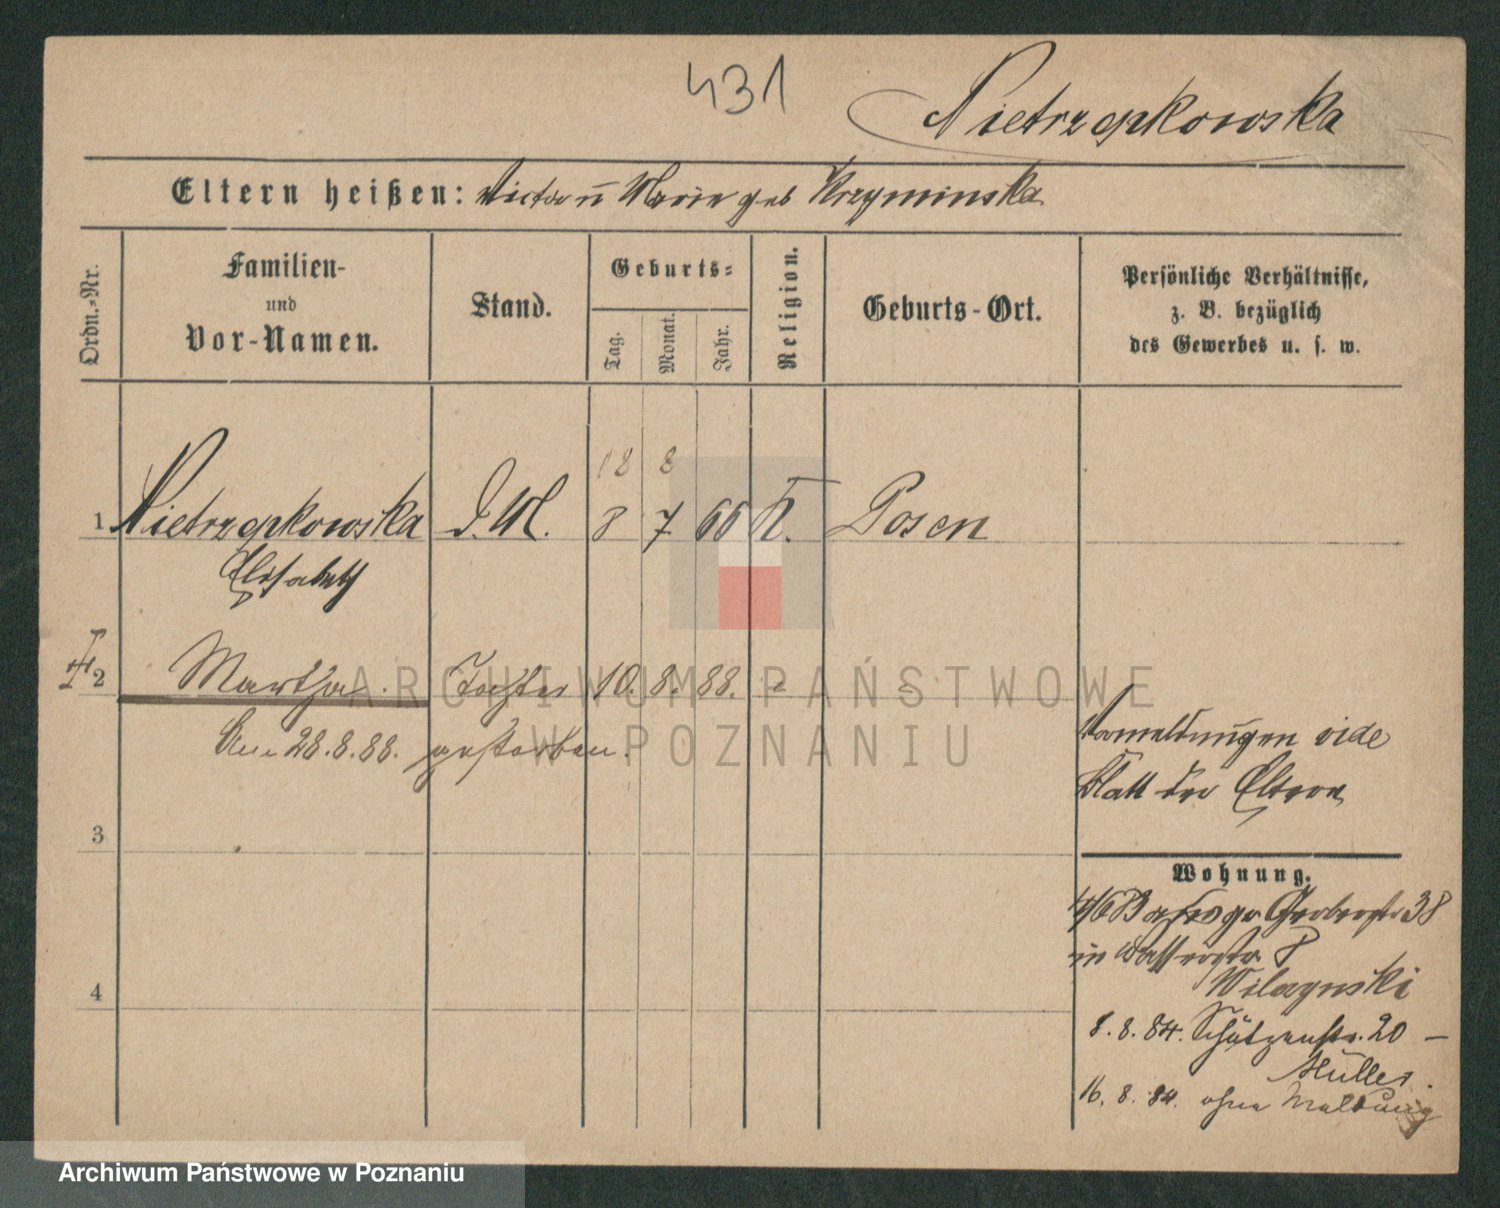 431
Pietrzepkowska
Eltern heißen: Victor u Marie geb Krzyminska
Ordn.-Nr.
Familien-
und
Vor-Namen.
Stand.
Geburts-
Tag.
Monat.
Jahr.
Religion.
Geburts-Ort.
Persönliche Verhältnisse,
z. B. bezüglich
des Gewerbes u. s. w.
18 8
1 Pietrzepkowska D.M. 8 7 66 K. Posen
Elisabeth
2 Martha. Tochter 10. 8. 88.
Am 28.8.88. gestorben.
Anmeldungen vide
Blatt der Eltern
3
Wohnung.
38
in Wasserstr. 8
4
8. 8. 84. Schützenstr. 20 –
Müller.
16. 8. 84. ohne Meldung
ARCHIWUM PAŃSTWOWE
W POZNANIU
Archiwum Państwowe w Poznaniu